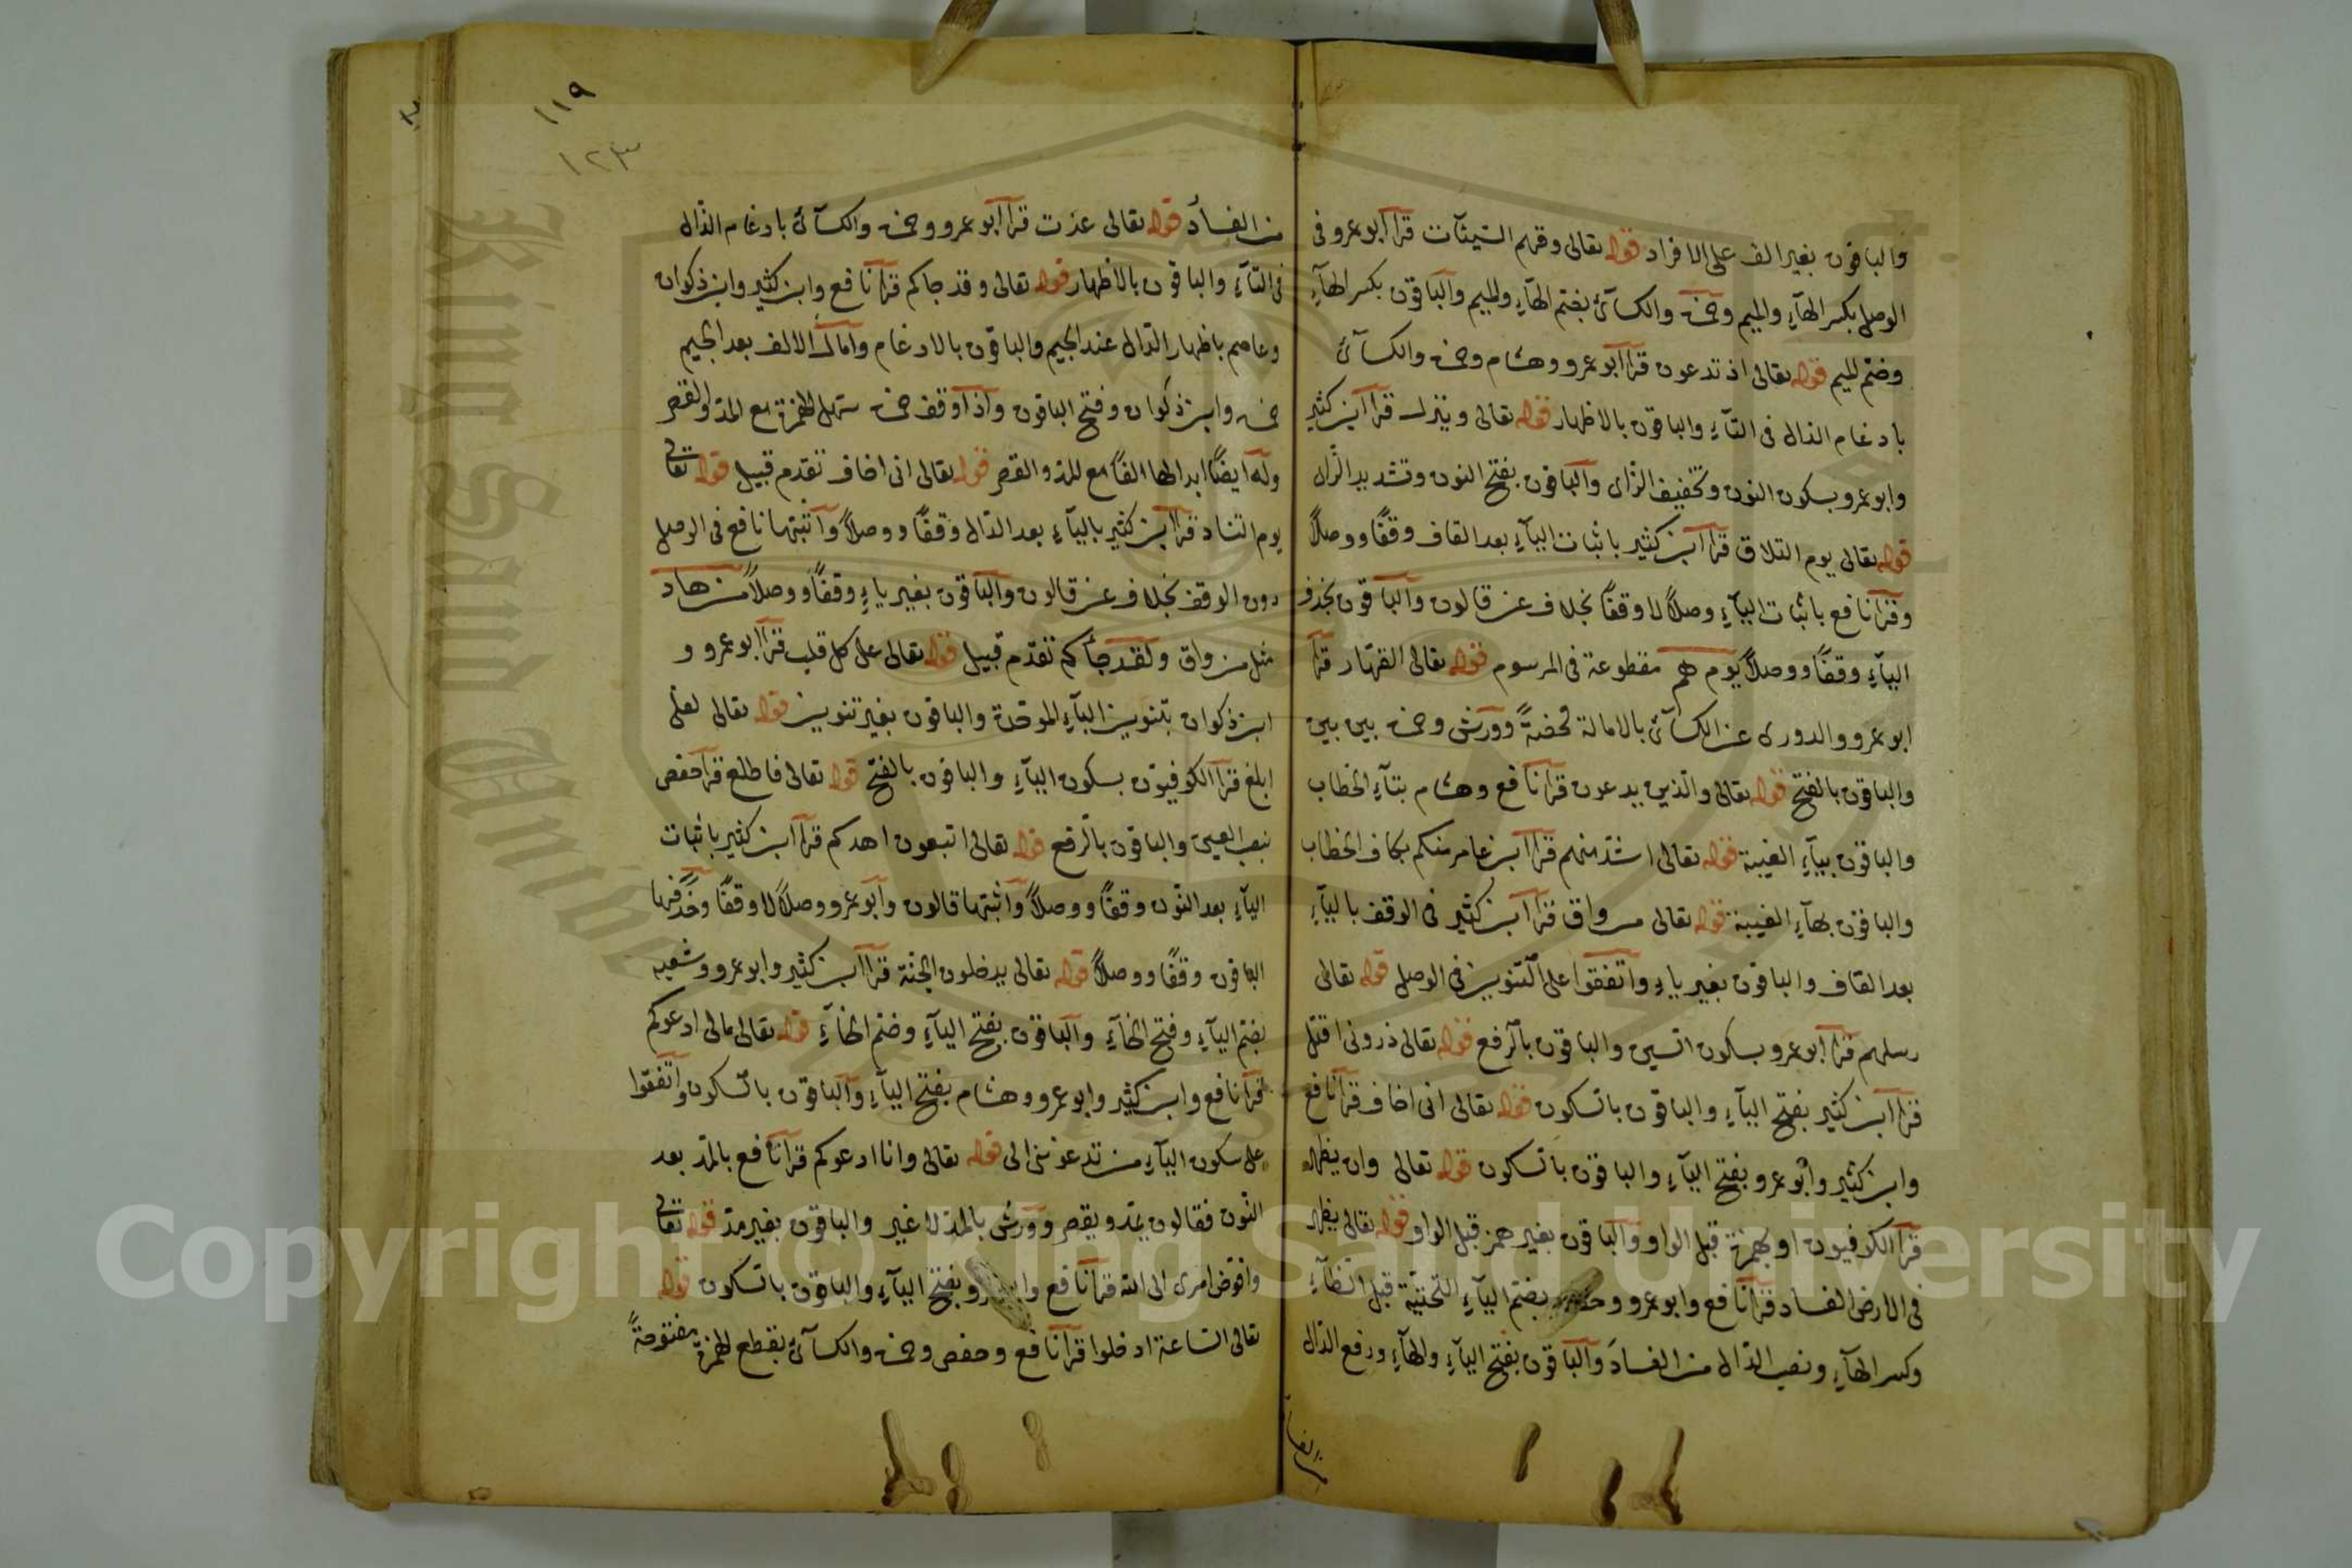 والباقون بغير الف على الافراد قوله تعالى وقهم السيئات قرأ ابو عمرو فى
الوصل بكسر الهآء والميم وحمزة والكسآئى بضم الهآء والميم والباقون بكسر الهآء
وضم الميم قوله تعالى اذ تدعون قرأ ابو عمرو وهشام وحمزة والكسآئى
بادغام الذال فى التآء والباقون بالاظهار قوله تعالى وينزل قرأ ابن كثير
وابو عمرو بسكون النون وتخفيف الزاى والباقون بفتح النون وتشديد الزاى
قوله تعالى يوم التلاق قرأ ابن كثير باثبات اليآء بعد القاف وقفًا ووصلًا
وقرأ نافع باثبات اليآء وصلًا لا وقفًا بخلاف عن قالون والباقون بحذف
اليآء وقفًا ووصلًا يوم هم مقطوعة فى المرسوم قوله تعالى القهار قرأ
ابو عمرو والدورى عن الكسآئى بالامالة محضةً وورش وحمزة بين بين
والباقون بالفتح قوله تعالى والذين يدعون قرأ نافع وهشام بتآء الخطاب
والباقون بيآء الغيبة قوله تعالى اشد منهم قرأ ابن عامر منكم بكاف الخطاب
والباقون بهآء الغيبة قوله تعالى من واق قرأ ابن كثير فى الوقف باليآء
بعد القاف والباقون بغير ياء واتفقوا على التنوين فى الوصل قوله تعالى
رسلهم قرأ ابو عمرو بسكون السين والباقون بالرفع قوله تعالى ذرونى اقتل
قرأ ابن كثير بفتح اليآء والباقون بالسكون قوله تعالى انى اخاف قرأ نافع
وابن كثير وابو عمرو بفتح اليآء والباقون بالسكون قوله تعالى وان يظهر
قرأ الكوفيون او بهمزة قبل الواو والباقون بغير همز قبل الواو قوله تعالى يظهر
فى الارض الفساد قرأ نافع وابو عمرو وحفص بضم اليآء التحتية قبل الظآء
وكسر الهآء ونصب الدال من الفساد والباقون بفتح اليآء والهآء ورفع الدال
من الفساد
١١٩
١٢٣
من الفساد قوله تعالى عذت قرأ ابو عمرو وحمزة والكسآئى بادغام الذال
فى التآء والباقون بالاظهار قوله تعالى وقد جاكم قرأ نافع وابن كثير وابن ذكوان
وعاصم باظهار الدال عند الجيم والباقون بالادغام وامال الالف بعد الجيم
حمزة وابن ذكوان وفتح الباقون واذا وقف حمزة سهل الهمزة مع المد والقصر
وله ايضًا ابدالها الفًا مع المد والقصر قوله تعالى انى اخاف تقدم قبيل قوله تعالى
يوم التناد قرأ ابن كثير باليآء بعد الدال وقفًا ووصلًا واثبتها نافع فى الوصل
دون الوقف بخلاف عن قالون والباقون بغير ياء وقفًا ووصلًا من هاد
مثل من واق ولقد جأكم تقدم قبيل قوله تعالى على كل قلب قرأ ابو عمرو و
ابن ذكوان بتنوين البآء الموحدة والباقون بغير تنوين قوله تعالى لعلى
ابلغ قرأ الكوفيون بسكون اليآء والباقون بالفتح قوله تعالى فاطلع قرأ حفص
بنصب العين والباقون بالرفع قوله تعالى اتبعون اهدكم قرأ ابن كثير باثبات
اليآء بعد النون وقفًا ووصلًا واثبتها قالون وابو عمرو وصلًا لا وقفًا وحذفها
الباقون وقفًا ووصلًا قوله تعالى يدخلون الجنة قرأ ابن كثير وابو عمرو وشعبه
بضم اليآء وفتح الخآء والباقون بفتح اليآء وضم الخآء قوله تعالى مالى ادعوكم
قرأ نافع وابن كثير وابو عمرو وهشام بفتح اليآء والباقون بالسكون واتفقوا
على سكون اليآء من تدعوننى الى قوله تعالى وانا ادعوكم قرأ نافع بالمد بعد
النون فقالون يمد ويقصر وورش بالمد لا غير والباقون بغير مد قوله تعالى
وافوض امرى الى الله قرأ نافع وابو عمرو بفتح اليآء والباقون بالسكون قوله
تعالى الساعة ادخلوا قرأ نافع وحفص وحمزة والكسآئى بقطع الهمزة مفتوحةً
King Saud University
Copyright © King Saud University